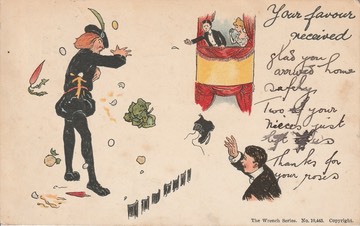 Your favour
received
glad you
arrived home
safely
Two of your
nieces just
left us
Thanks for
your posies
The Wrench Series. No. 10,442. Copyright.